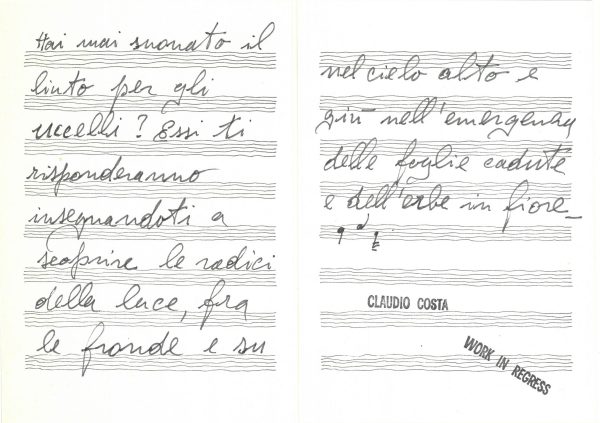 Hai mai suonato il
liuto per gli
uccelli? Essi ti
risponderanno
insegnandoti a
scoprire le radici
della luce, fra
le fronde e su
nel cielo alto e
giù nell'emergenza
delle foglie cadute
e dell'erbe in fiore_
CLAUDIO COSTA
WORK IN REGRESS